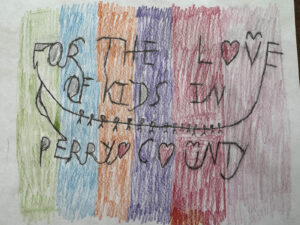 FOR THE LOVE
OF KIDS IN
PERRY COUNTY